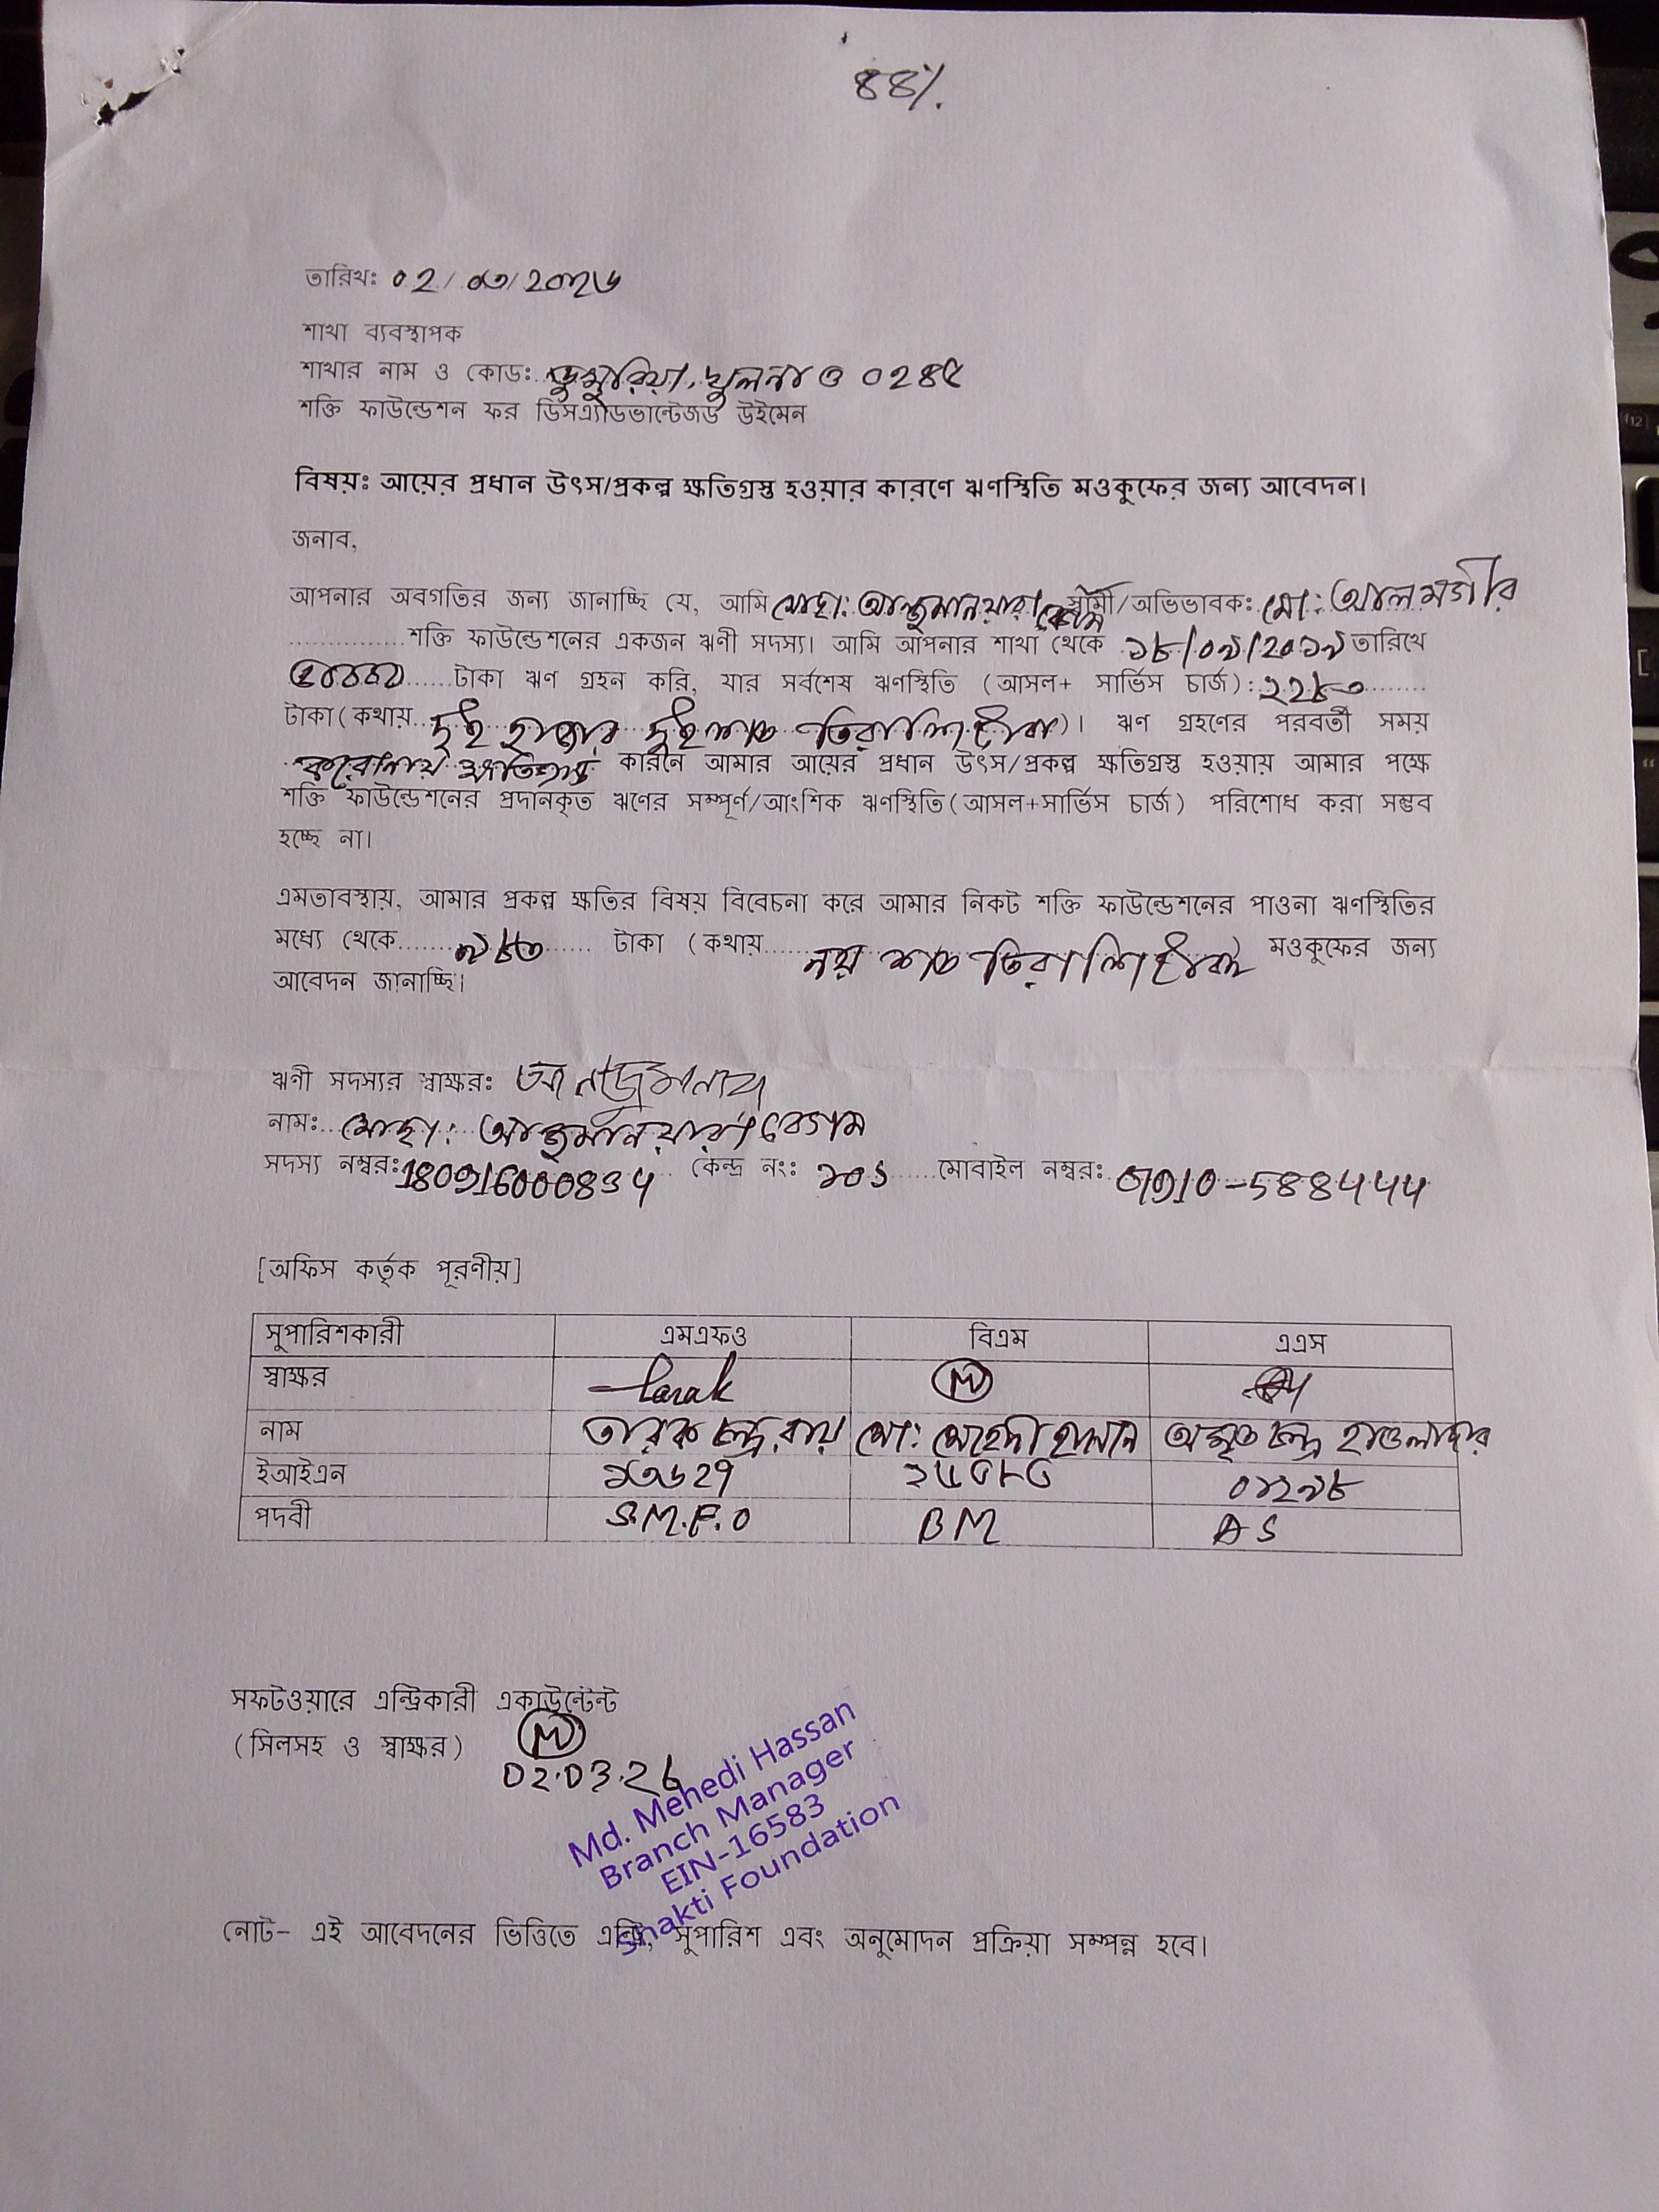 ৪৪%.
তারিখঃ ০২/০৩/২০২৬
শাখা ব্যবস্থাপক
শাখার নাম ও কোডঃ ডুমুরিয়া, খুলনা ও ০২৪৫
শক্তি ফাউন্ডেশন ফর ডিসএ্যাডভান্টেজড উইমেন
বিষয়ঃ আয়ের প্রধান উৎস/প্রকল্প ক্ষতিগ্রস্ত হওয়ার কারণে ঋণস্থিতি মওকুফের জন্য আবেদন।
জনাব,
আপনার অবগতির জন্য জানাচ্ছি যে, আমি মোছা: আন্জুমানয়ারা বেগম স্বামী/অভিভাবক: মো: আলমগীর
শক্তি ফাউন্ডেশনের একজন ঋণী সদস্য। আমি আপনার শাখা থেকে ১৮/০৯/২০১৯ তারিখে
টাকা ঋণ গ্রহন করি, যার সর্বশেষ ঋণস্থিতি (আসল+ সার্ভিস চার্জ): ২২৮৩
টাকা(কথায় দুই হাজার দুইশত তিরাশি টাকা)। ঋণ গ্রহণের পরবর্তী সময়
করোনায় ক্ষতিগ্রস্ত কারনে আমার আয়ের প্রধান উৎস/প্রকল্প ক্ষতিগ্রস্ত হওয়ায় আমার পক্ষে
শক্তি ফাউন্ডেশনের প্রদানকৃত ঋণের সম্পূর্ণ/আংশিক ঋণস্থিতি(আসল+সার্ভিস চার্জ) পরিশোধ করা সম্ভব
হচ্ছে না।
এমতাবস্থায়, আমার প্রকল্প ক্ষতির বিষয় বিবেচনা করে আমার নিকট শক্তি ফাউন্ডেশনের পাওনা ঋণস্থিতির
মধ্যে থেকে ৯৮৩ টাকা (কথায় নয় শত তিরাশি টাকা) মওকুফের জন্য
আবেদন জানাচ্ছি।
ঋণী সদস্যর স্বাক্ষরঃ
নামঃ মোছা: আন্জুমানয়ারা বেগম
সদস্য নম্বরঃ কেন্দ্র নংঃ ১০১ মোবাইল নম্বরঃ
[অফিস কর্তৃক পূরণীয়]
সুপারিশকারী এমএফও বিএম এএস
স্বাক্ষর Tarak
নাম তারক চন্দ্র রায় মো: মেহেদী হাসান অমৃত চন্দ্র হাওলাদার
ইআইএন ১৩৬২৭ ০১২৯৮
পদবী S.M.F.O BM AS
সফটওয়ারে এন্ট্রিকারী একাউন্টেন্ট
(সিলসহ ও স্বাক্ষর)
02.03.26
Md. Mehedi Hassan
Branch Manager
EIN-16583
Shakti Foundation
নোট- এই আবেদনের ভিত্তিতে এন্ট্রি, সুপারিশ এবং অনুমোদন প্রক্রিয়া সম্পন্ন হবে।